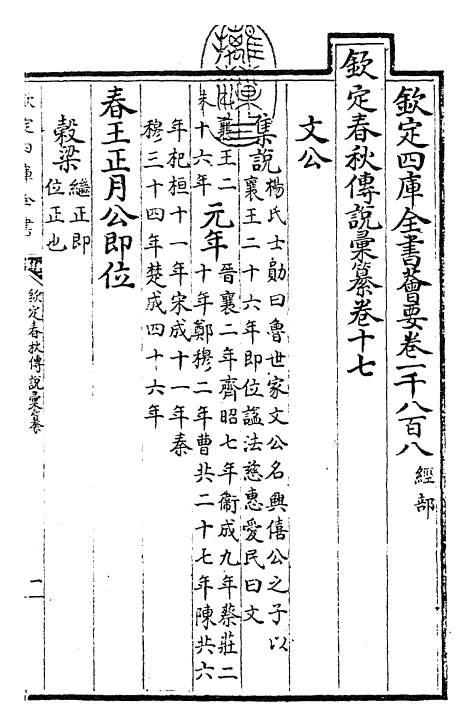 欽定四庫全書薈要卷一千八百八
經部
欽定春秋傳說彙纂卷十七
文公
集說
楊氏士勛曰魯世家文公名興僖公之子以
襄王二十六年即位諡法慈惠愛民曰文
襄王二
未十六年
元年
晉襄二年齊昭七年衞成九年蔡莊二
十年鄭穆二年曹共二十七年陳共六
年杞桓十一年宋成十一年秦
穆三十四年楚成四十六年
春王正月公即位
穀梁
繼正即
位正也
欽定四庫全書
欽定春秋傳說彙纂